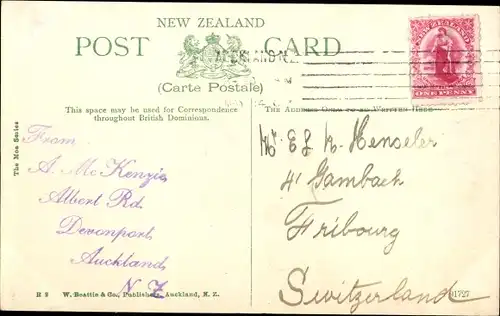 NEW ZEALAND
POST CARD
(Carte Postale)
AUCKLAND N.Z.
NEW ZEALAND
ONE PENNY
This space may be used for Correspondence
throughout British Dominions.
The Address Only to be Written Here.
The Moa Series
From
A. McKenzie
Albert Rd.
Devonport
Auckland
N Z
Mr. E
Henseler
41 Gambach
Fribourg
Switzerland
R 9 W. Beattie & Co., Publishers, Auckland, N. Z.
91727